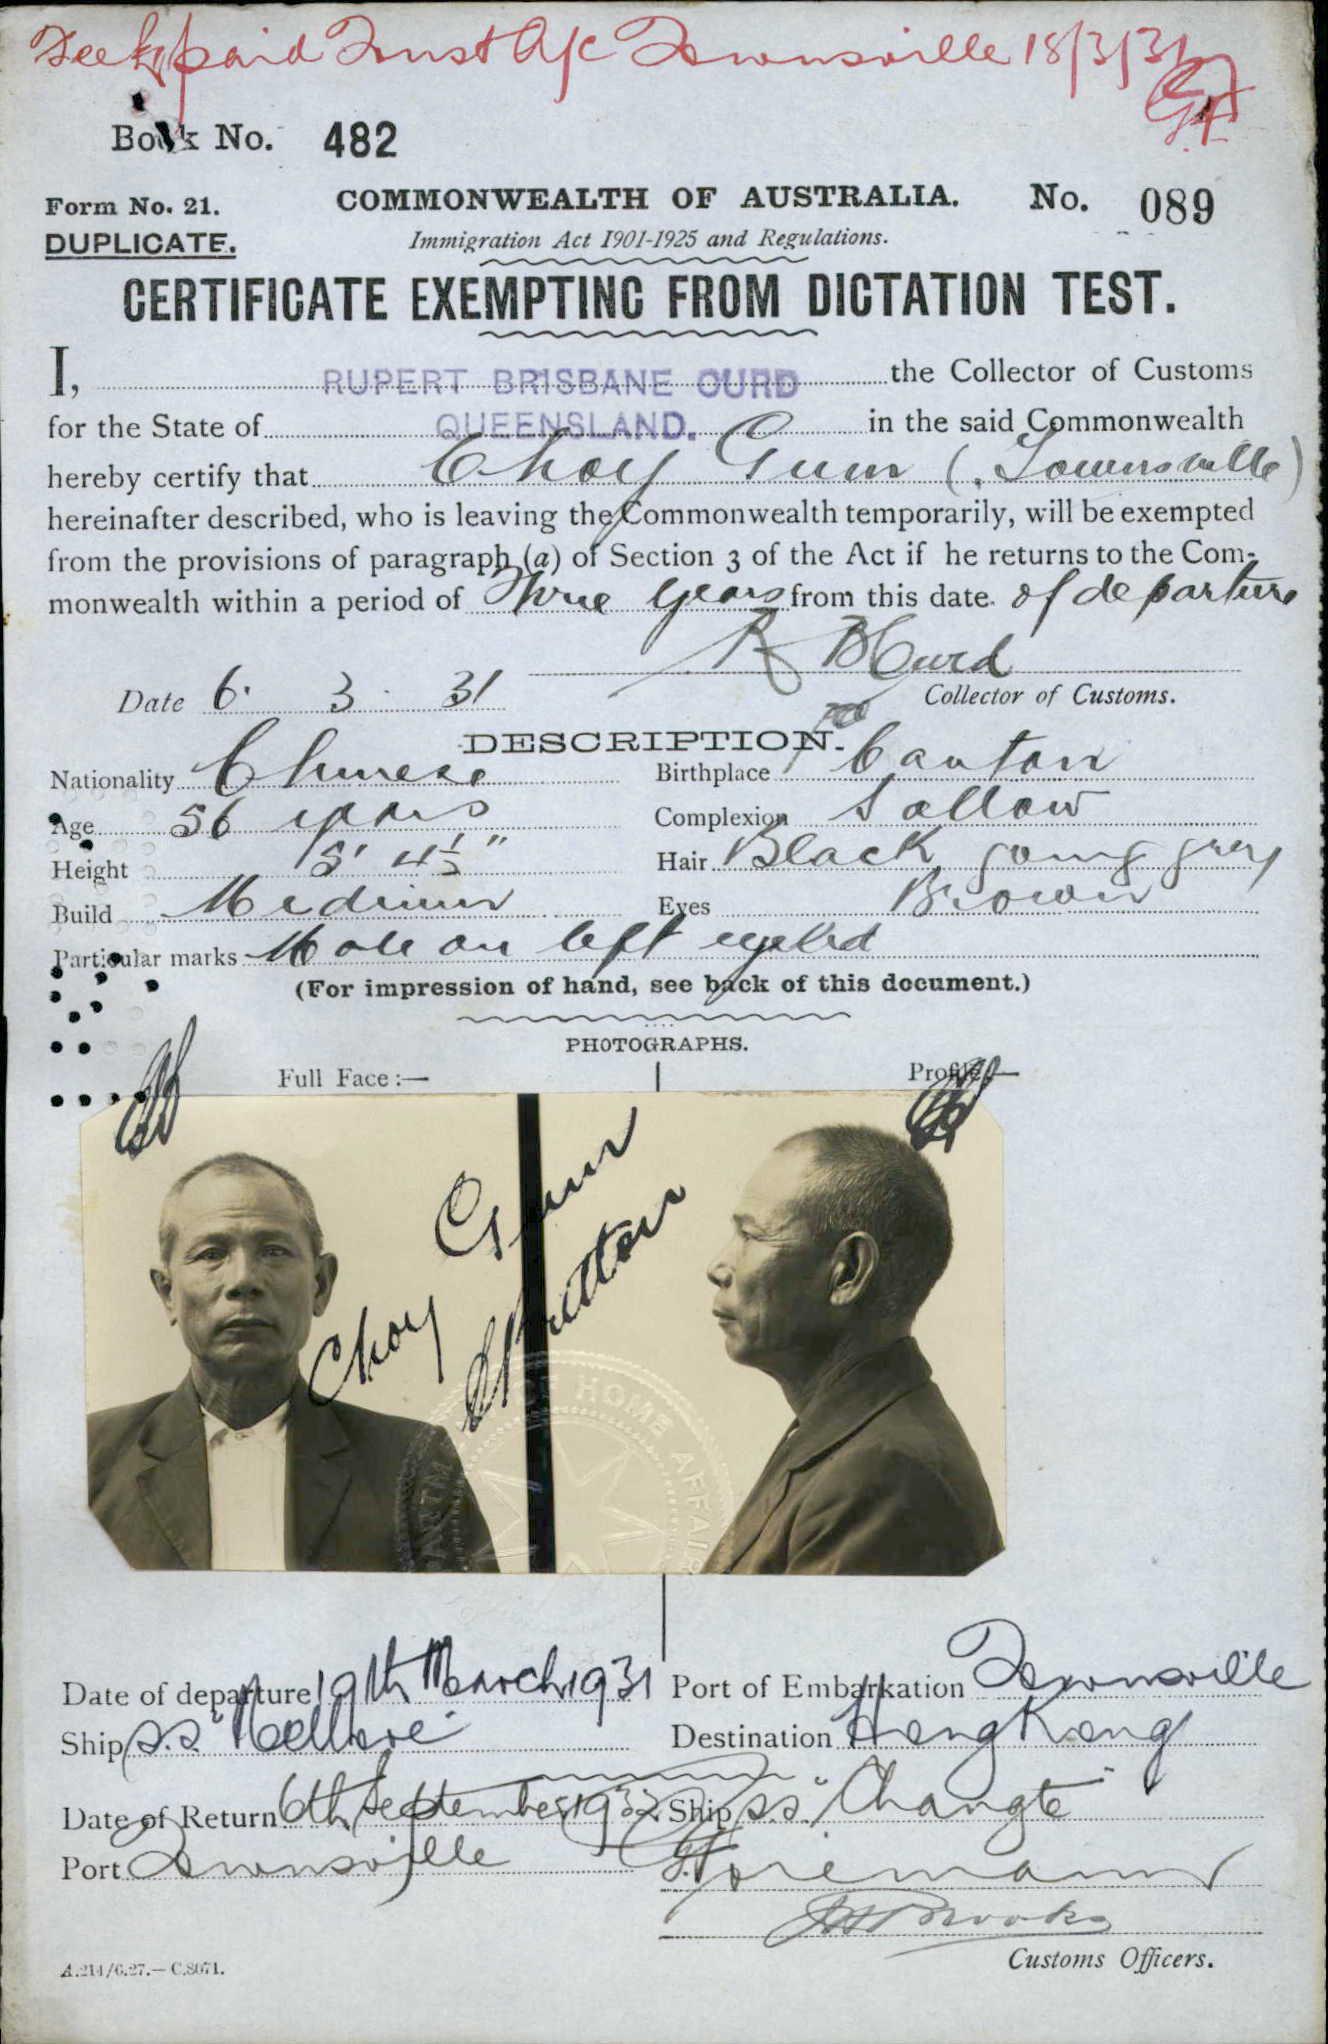 Fee £1 paid Trust A/c Townsville 18/3/31
Book No. 482
Form No. 21. COMMONWEALTH OF AUSTRALIA. No. 089
DUPLICATE. Immigration Act 1901-1925 and Regulations.
CERTIFICATE EXEMPTING FROM DICTATION TEST.
I, RUPERT BRISBANE CURD the Collector of Customs
for the State of QUEENSLAND. in the said Commonwealth
hereby certify that Choy Gum (Townsville)
hereinafter described, who is leaving the Commonwealth temporarily, will be exempted
from the provisions of paragraph (a) of Section 3 of the Act if he returns to the Com-
monwealth within a period of Three years from this date of departure
R B Curd
Date 6. 3. 31 Collector of Customs.
DESCRIPTION.
Nationality Chinese Birthplace Canton
Age 56 years Complexion Sallow
Height 5' 4½" Hair Black, going grey
Build Medium Eyes Brown
Particular marks Mole on left eyelid
(For impression of hand, see back of this document.)
PHOTOGRAPHS.
Full Face:— Profile:—
Choy Gum
HOME AFFAIR
Date of departure 19th March 1931 Port of Embarkation Townsville
Ship s.s. "Nellore" Destination Hong Kong
Date of Return 6th September 1932 Ship s.s. "Changte"
Port Townsville
Customs Officers.
A.214/6.27.—C.8071.